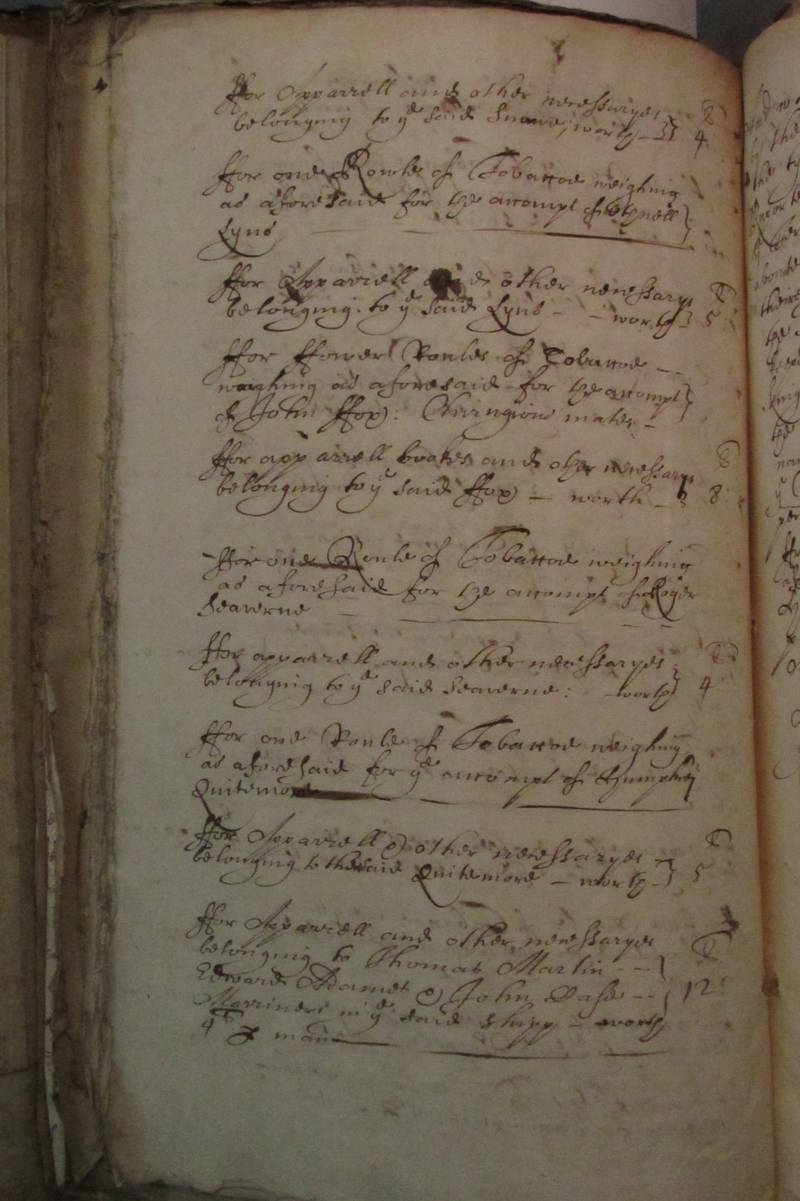 ffor Apparrell and other necessaryes
belonging to ye said Snowe, worth - li 4
ffor one Rowle of Tobaccoe weighing
as aforesaid for the accompt of
Lyns
ffor Apparrell other necessarys
belonging to ye said Lyns - - worth li 5
ffor ffower Roules of Tobaccoe
waighing as aforesaid for the accompt
of John ffox: mate -
ffor apparrell bookes and other necessarys
belonging to ye said ffox - worth - li 8
ffor one Roule of Tobaccoe weighing
as aforesaid for the accompt of Roger
Seaverne
ffor apparrell and other necessaryes
belonging to ye said Seaverne: worth li 4
ffor one Roule of Tobaccoe weighing
as aforesaid for ye accompt of Humphrey
Quitemore
ffor Apparrell & other necessaryes
belonging to the said Quitemore - worth li 5
ffor Apparrell and other necessaryes
belonging to Thomas Martin - -
Edward Adames & John - - li 12
Marriners in ye said shipp - worth
4li man